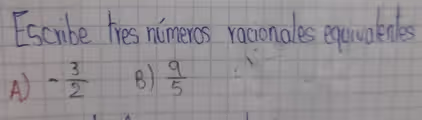 Escribe tres números racionales equivalentes
A) -3/2 B) 9/5